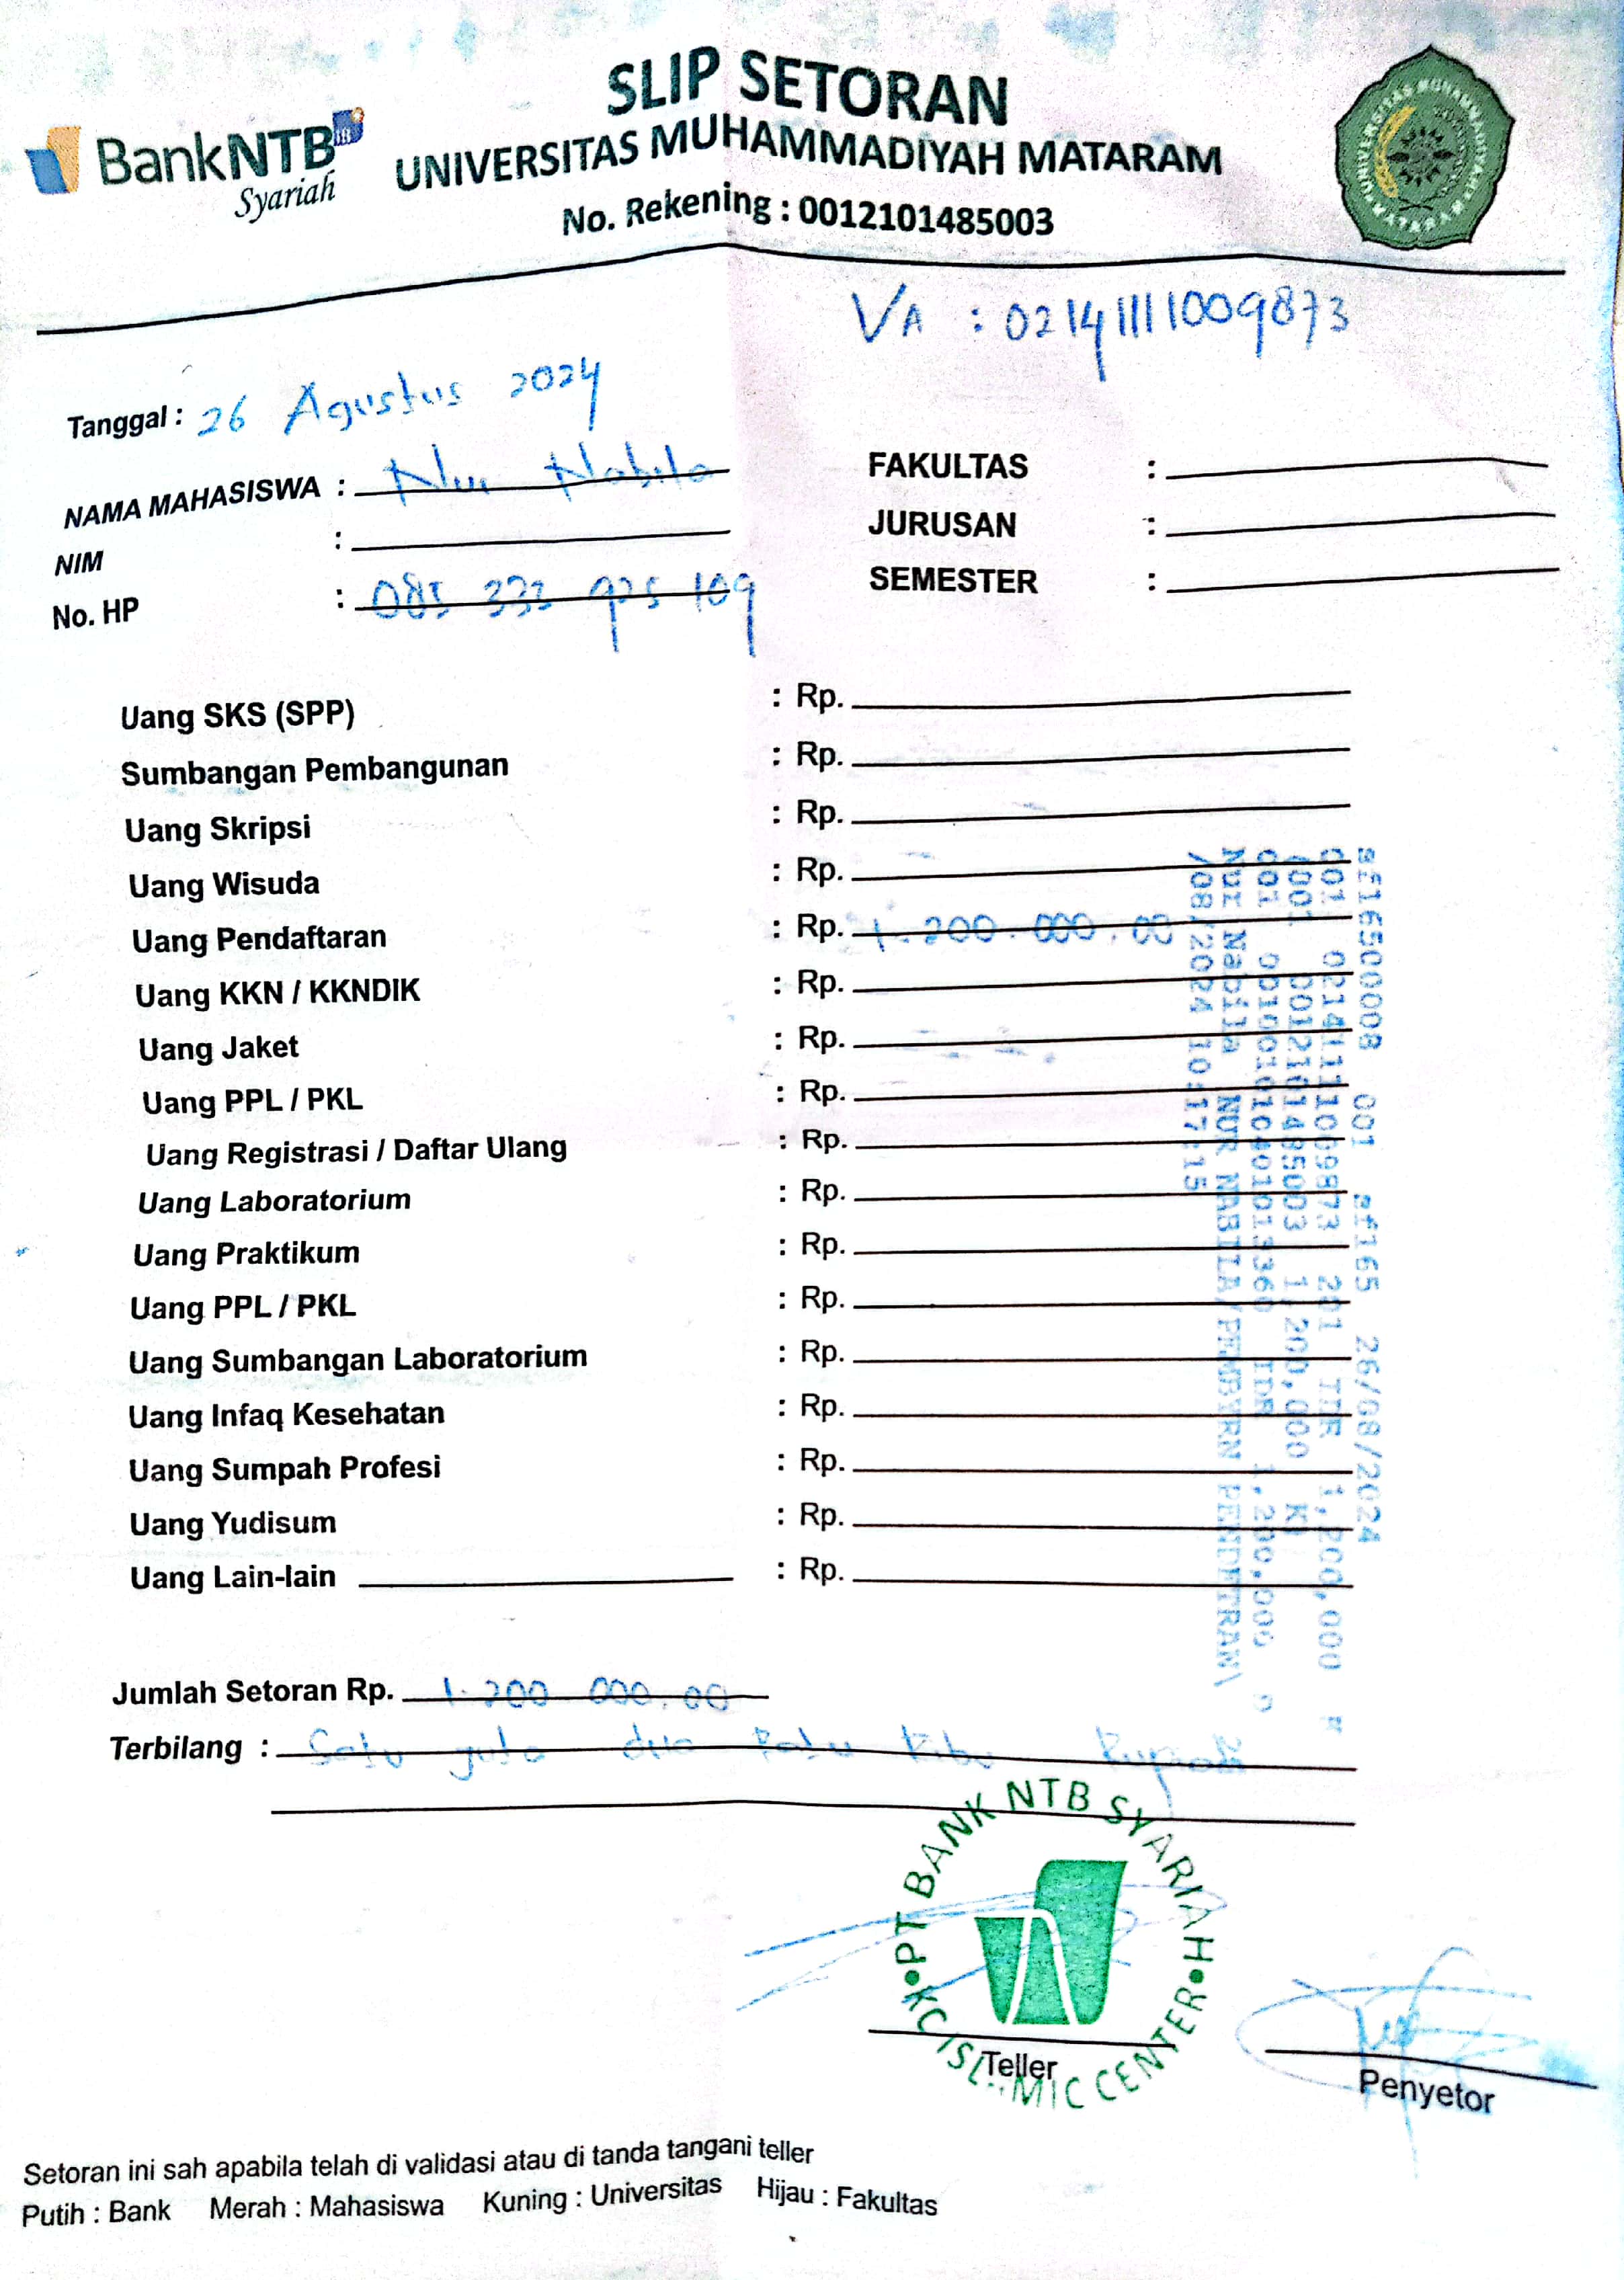 BankNTB
Syariah
SLIP SETORAN
UNIVERSITAS MUHAMMADIYAH MATARAM
No. Rekening : 0012101485003
VA : 02141111009873
Tanggal : 26 Agustus 2024
NAMA MAHASISWA : Nur Nabila
NIM :
No. HP : 085 333 925 109
FAKULTAS :
JURUSAN :
SEMESTER :
Uang SKS (SPP) : Rp.
Sumbangan Pembangunan : Rp.
Uang Skripsi : Rp.
Uang Wisuda : Rp.
Uang Pendaftaran : Rp. 1.200.000.00
Uang KKN / KKNDIK : Rp.
Uang Jaket : Rp.
Uang PPL / PKL : Rp.
Uang Registrasi / Daftar Ulang : Rp.
Uang Laboratorium : Rp.
Uang Praktikum : Rp.
Uang PPL / PKL : Rp.
Uang Sumbangan Laboratorium : Rp.
Uang Infaq Kesehatan : Rp.
Uang Sumpah Profesi : Rp.
Uang Yudisum : Rp.
Uang Lain-lain : Rp.
sf16500008 001 sf165 26/08/2024
001 02141111009873 201 1,200,000
001 0012101485003 1,200,000
001 IDR 1,200,000
Nur Nabila NUR NABILA/PEMBYRN PENDFTRAN\
/08/2024 10:17:15
Jumlah Setoran Rp. 1.200 000.00
Terbilang : Satu juta dua Ratus Ribu Rupiah
PT BANK NTB SYARIAH
KC ISLAMIC CENTER
Teller
Penyetor
Setoran ini sah apabila telah di validasi atau di tanda tangani teller
Putih : Bank Merah : Mahasiswa Kuning : Universitas Hijau : Fakultas